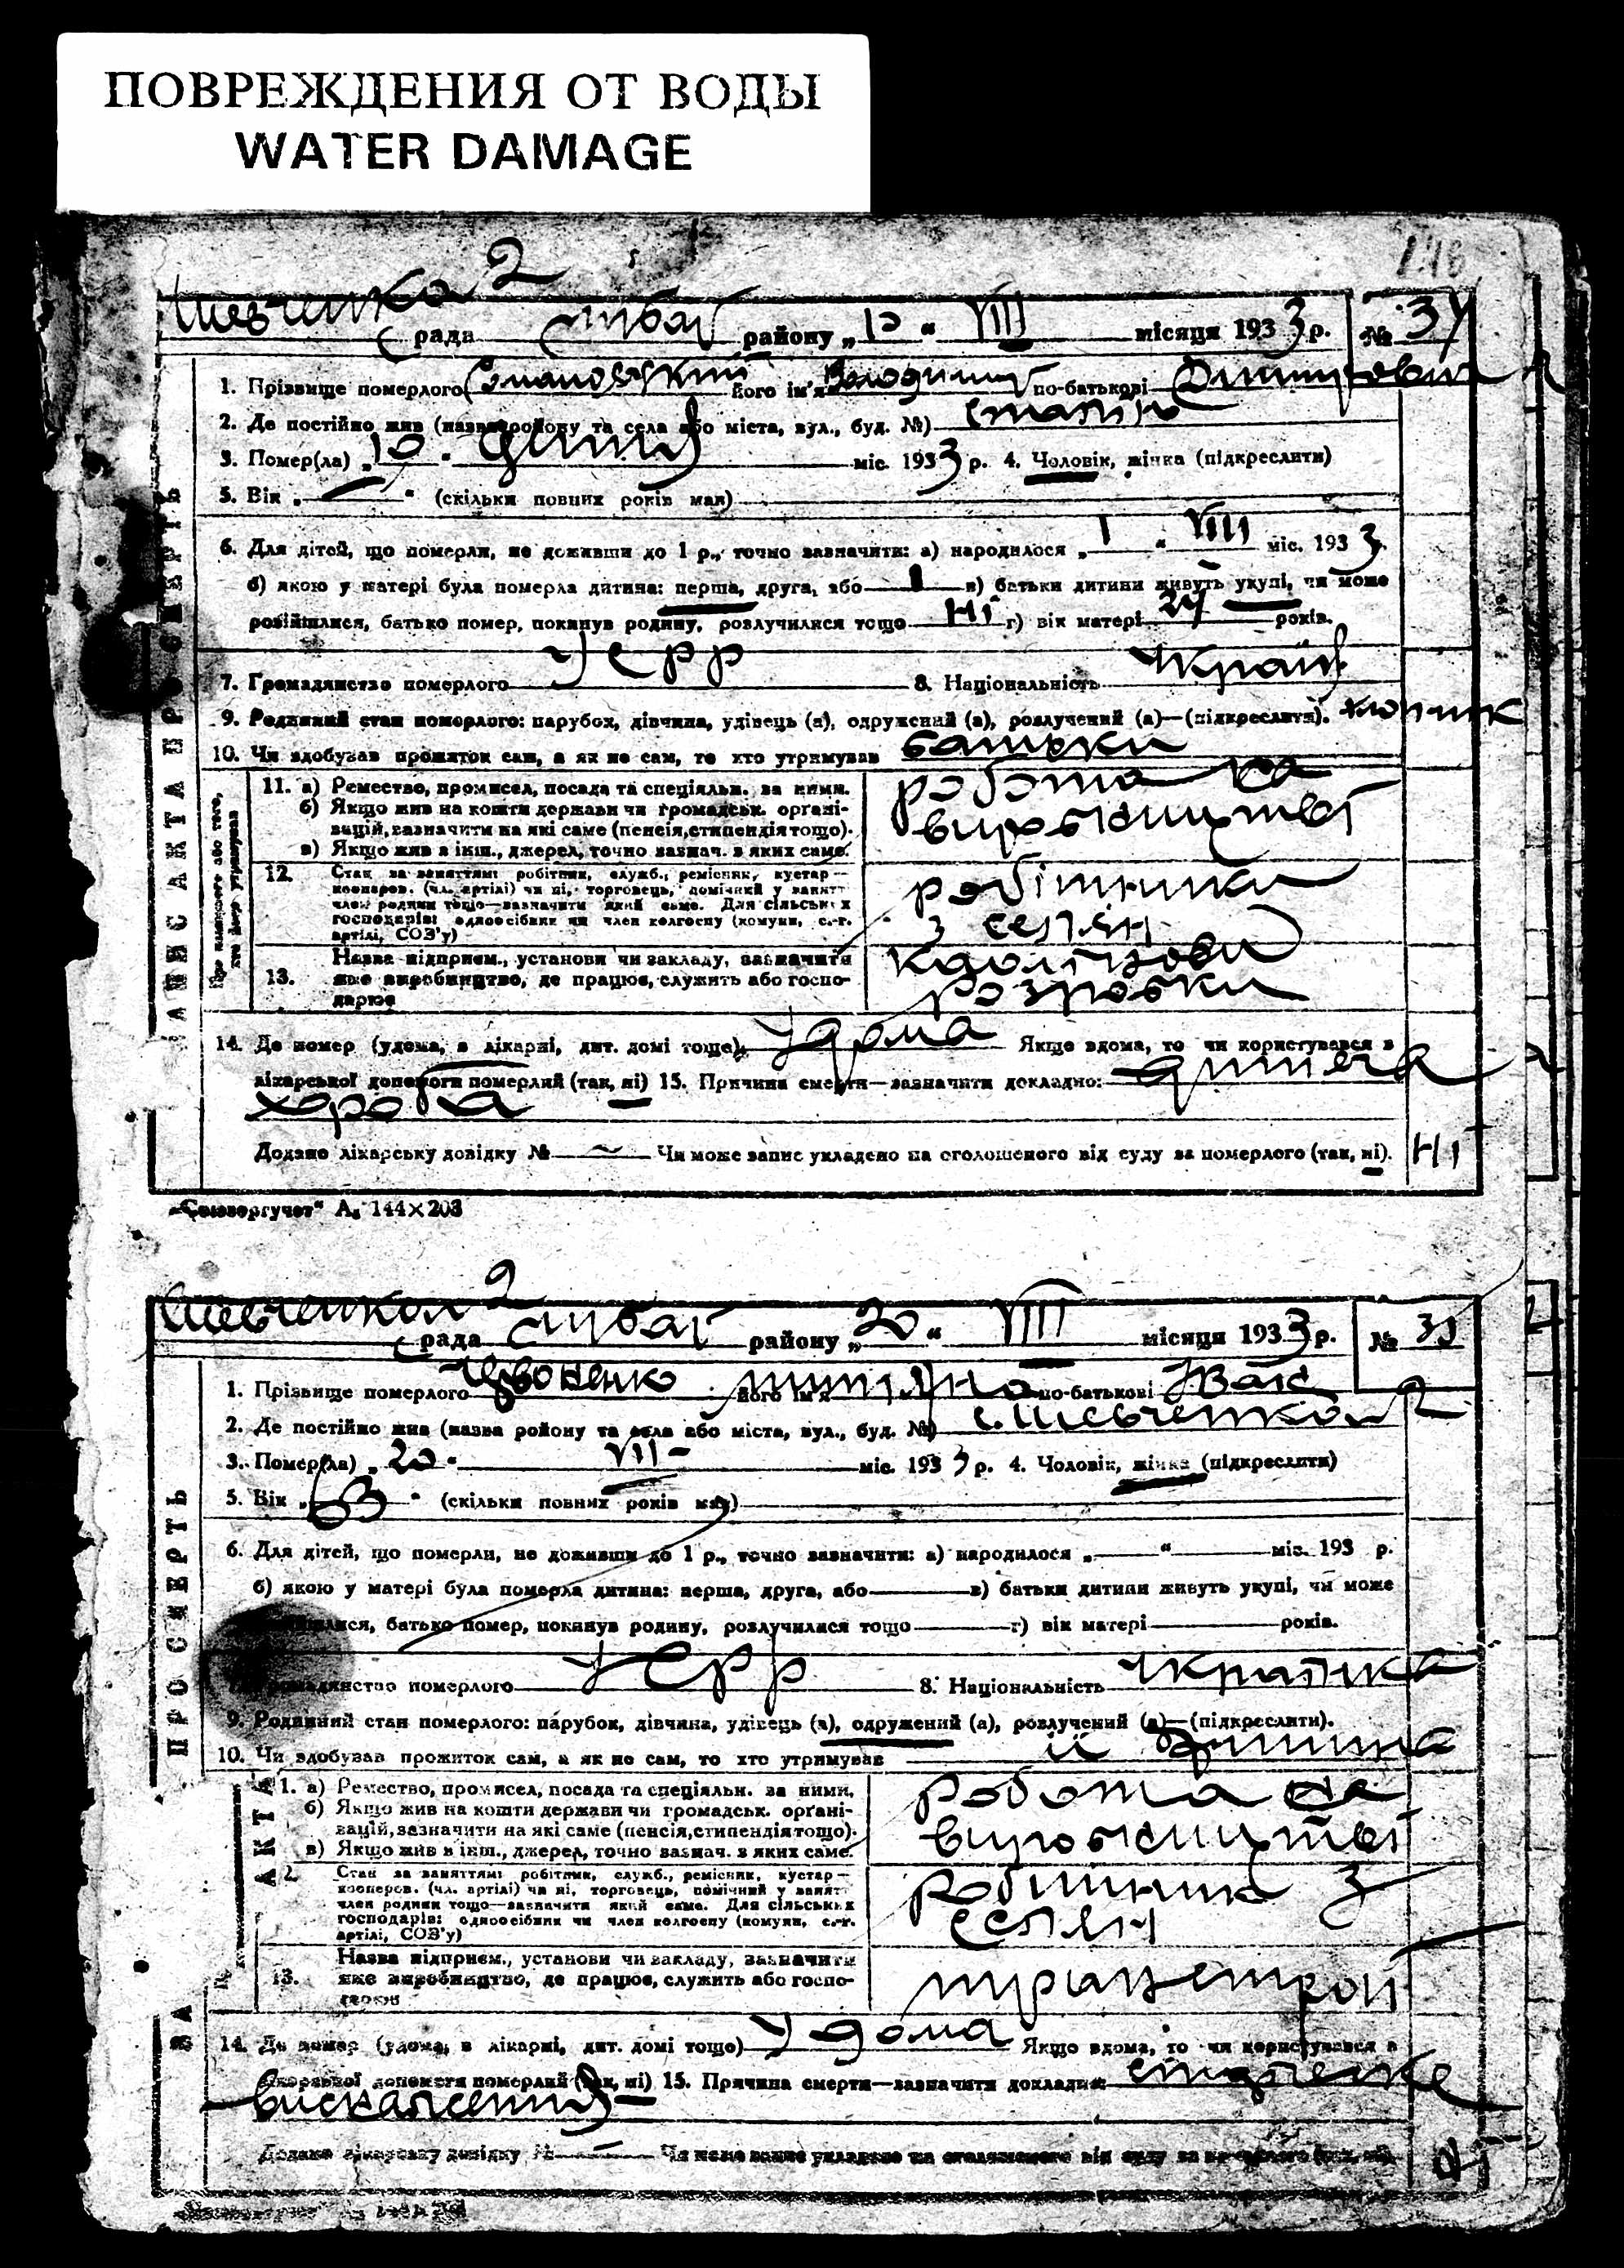 ПОВРЕЖДЕНИЯ ОТ ВОДЫ
WATER DAMAGE
2
рада району „10“ VIII місяця 1933 р. № 34
1. Прізвище померлого його ім'я Володимир по-батькові
2. Де постійно жив (назва району та села або міста, вул., буд. №)
3. Помер(ла) „10“ міс. 1933 р. 4. Чоловік, жінка (підкреслити)
5. Вік „—“ (скільки повних років мав)
6. Для дітей, що померли, не доживши до 1 р., точно зазначити: а) народилося „1“ VIII міс. 1933
б) якою у матері була померла дитина: перша, друга, або 1 в) батьки дитини живуть укупі, чи може
розійшлися, батько помер, покинув родину, розлучилися тощо ні г) вік матері 24 років.
7. Громадянство померлого УСРР 8. Національність
9. Родинний стан померлого: парубок, дівчина, удівець (а), одружений (а), розлучений (а)—(підкреслити). хлопчик
10. Чи здобував прожиток сам, а як не сам, то хто утримував батьки
11. а) Ремество, промисел, посада та спеціяльн. за ними.
б) Якщо жив на кошти держави чи громадськ. органі-
зацій, зазначити на які саме (пенсія, стипендія тощо).
в) Якщо жив з інш., джерел, точно зазнач. з яких саме.
робота на
виробництві
12. Стан за заняттям: робітник, служб., ремісник, кустар—
кооперов. (чл. артілі) чи ні, торговець, помічний у занятт
член родини тощо—зазначити який саме. Для сільських
господарів: одноосібник чи член колгоспу (комуни, с.-г.
артілі, СОЗ'у)
робітники
з селян
13. Назва підприєм., установи чи закладу, зазначити
яке виробництво, де працює, служить або госпо-
дарює
14. Де помер (удома, в лікарні, дит. домі тощо) удома Якщо вдома, то чи користувався з
лікарської допомоги померлий (так, ні) 15. Причина смерти—зазначити докладно: дитяча
хороба
Додано лікарську довідку № — Чи може запис укладено на оголошеного від суду за померлого (так, ні). Ні
„Союзоргучет“ А₆ 144×203
2
рада району „20“ VIII місяця 1933 р. №
1. Прізвище померлого його ім'я по-батькові Іван
2. Де постійно жив (назва району та села або міста, вул., буд. №) с. 2
3. Помер(ла) „20“ VII міс. 1933 р. 4. Чоловік, жінка (підкреслити)
5. Вік „63“ (скільки повних років мав)
6. Для дітей, що померли, не доживши до 1 р., точно зазначити: а) народилося „—“ міс. 193 р.
б) якою у матері була померла дитина: перша, друга, або — в) батьки дитини живуть укупі, чи може
батько помер, покинув родину, розлучилися тощо — г) вік матері — років.
громадянство померлого УСРР 8. Національність українка
9. Родинний стан померлого: парубок, дівчина, удівець (а), одружений (а), розлучений (а)—(підкреслити).
10. Чи здобував прожиток сам, а як не сам, то хто утримував її
а) Ремество, промисел, посада та спеціяльн. за ними.
б) Якщо жив на кошти держави чи громадськ. органі-
зацій, зазначити на які саме (пенсія, стипендія тощо).
в) Якщо жив з інш., джерел, точно зазнач. з яких саме.
робота на
виробництві
Стан за заняттям: робітник, служб., ремісник, кустар—
кооперов. (чл. артілі) чи ні, торговець, помічний у занятт
член родини тощо—зазначити який саме. Для сільських
господарів: одноосібник чи член колгоспу (комуни, с.-г.
артілі, СОЗ'у)
робітник з
селян
13. Назва підприєм., установи чи закладу, зазначити
яке виробництво, де працює, служить або госпо-
14. Де помер (удома, в лікарні, дит. домі тощо) удома Якщо вдома, то чи користувався з
лікарської допомоги померлий (так, ні) 15. Причина смерти—зазначити докладно:
Додано лікарську довідку № — Чи може запис укладено на оголошеного від суду за померлого (так, ні).
ПРО СМЕРТЬ